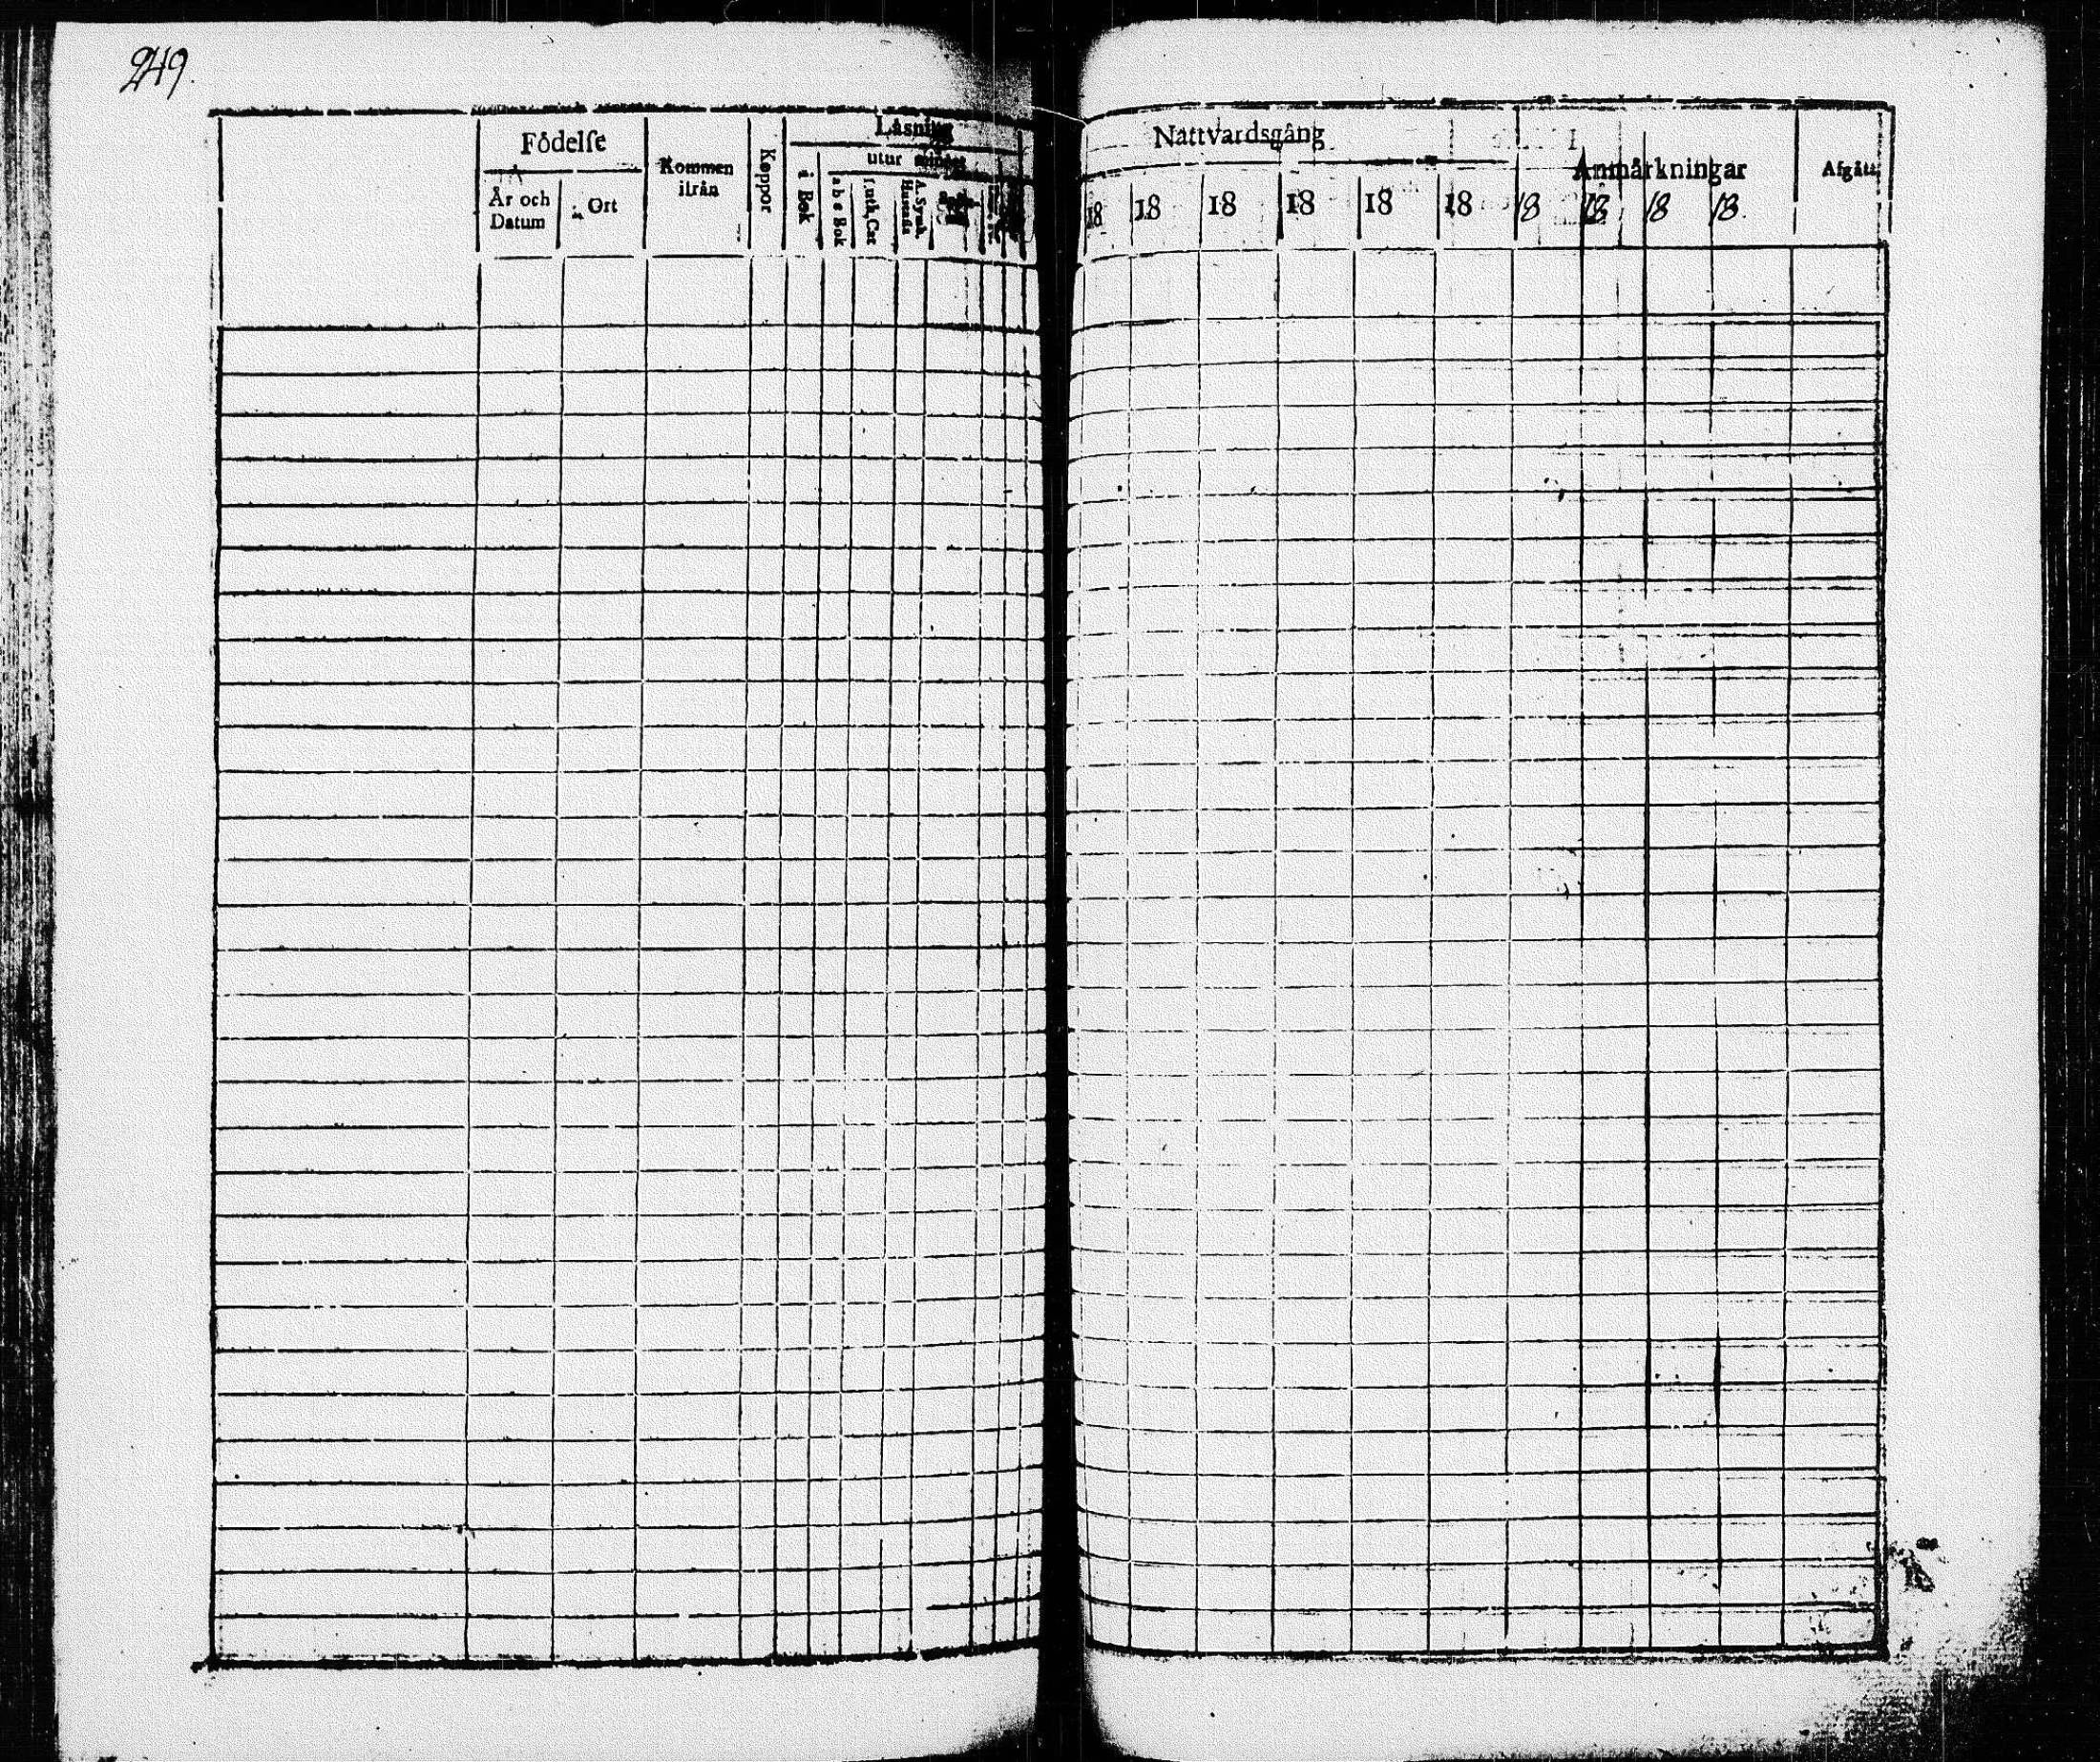 249.
Födelſe
År och Datum
Ort
Kommen ifrån
Koppor
Läsning
i Bok
utur minnet
a b c Bok
Luth. Cat
A. Symb. Hustafla
Nattvardsgång
18 18 18 18 18 18 18 18 18 18.
Anmärkningar
Afgått